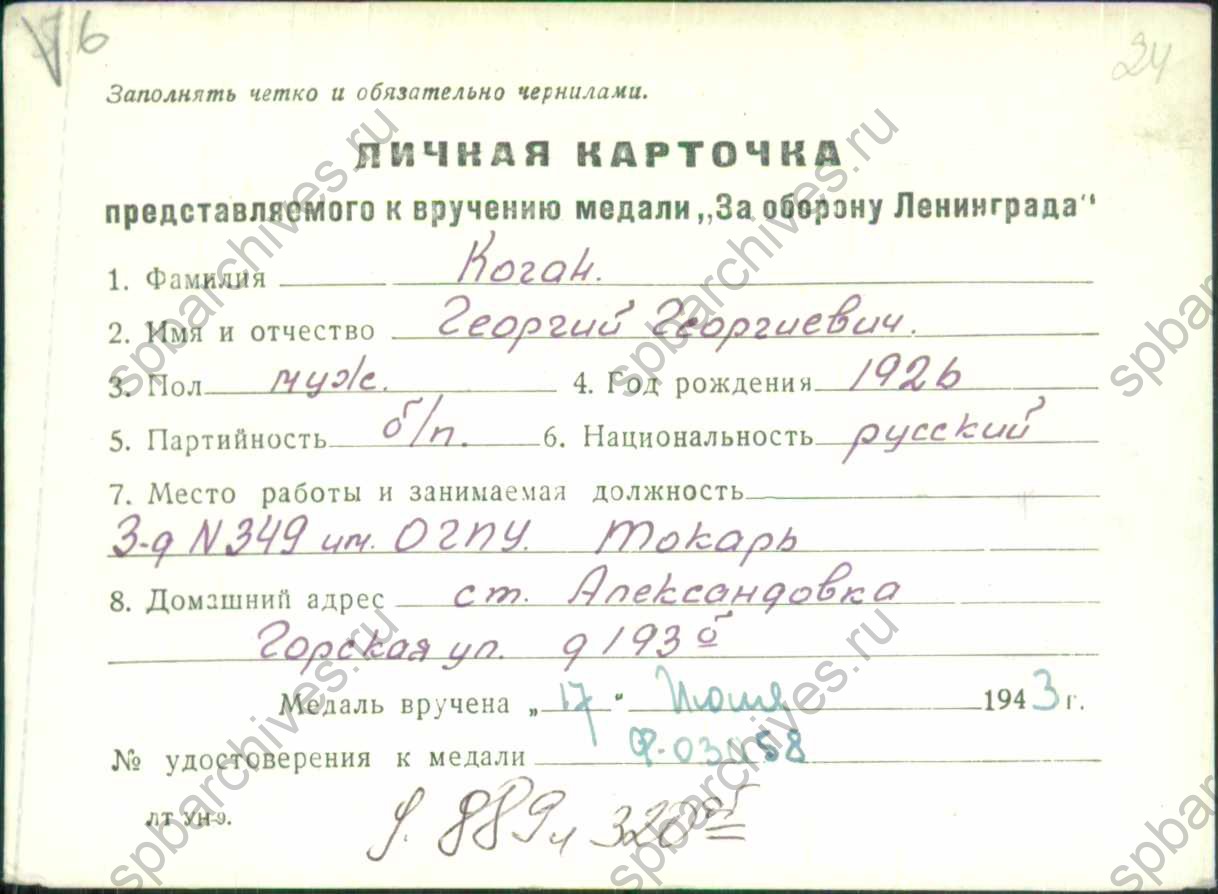 6 24
Заполнять четко и обязательно чернилами.
ЛИЧНАЯ КАРТОЧКА
представляемого к вручению медали „За оборону Ленинграда"
1. Фамилия Коган.
2. Имя и отчество Георгий Георгиевич.
3. Пол муж. 4. Год рождения 1926
5. Партийность б/п. 6. Национальность русский
7. Место работы и занимаемая должность
З-д N 349 им. ОГПУ. Токарь
8. Домашний адрес ст. Александовка
Горская ул. д 193 б
Медаль вручена „17" Июля 1943 г.
№ удостоверения к медали
ЛТ УН-э.
д. 889 л 320 об
spbarchives.ru
spbarchives.ru
spbarchives.ru
spbarchives.ru